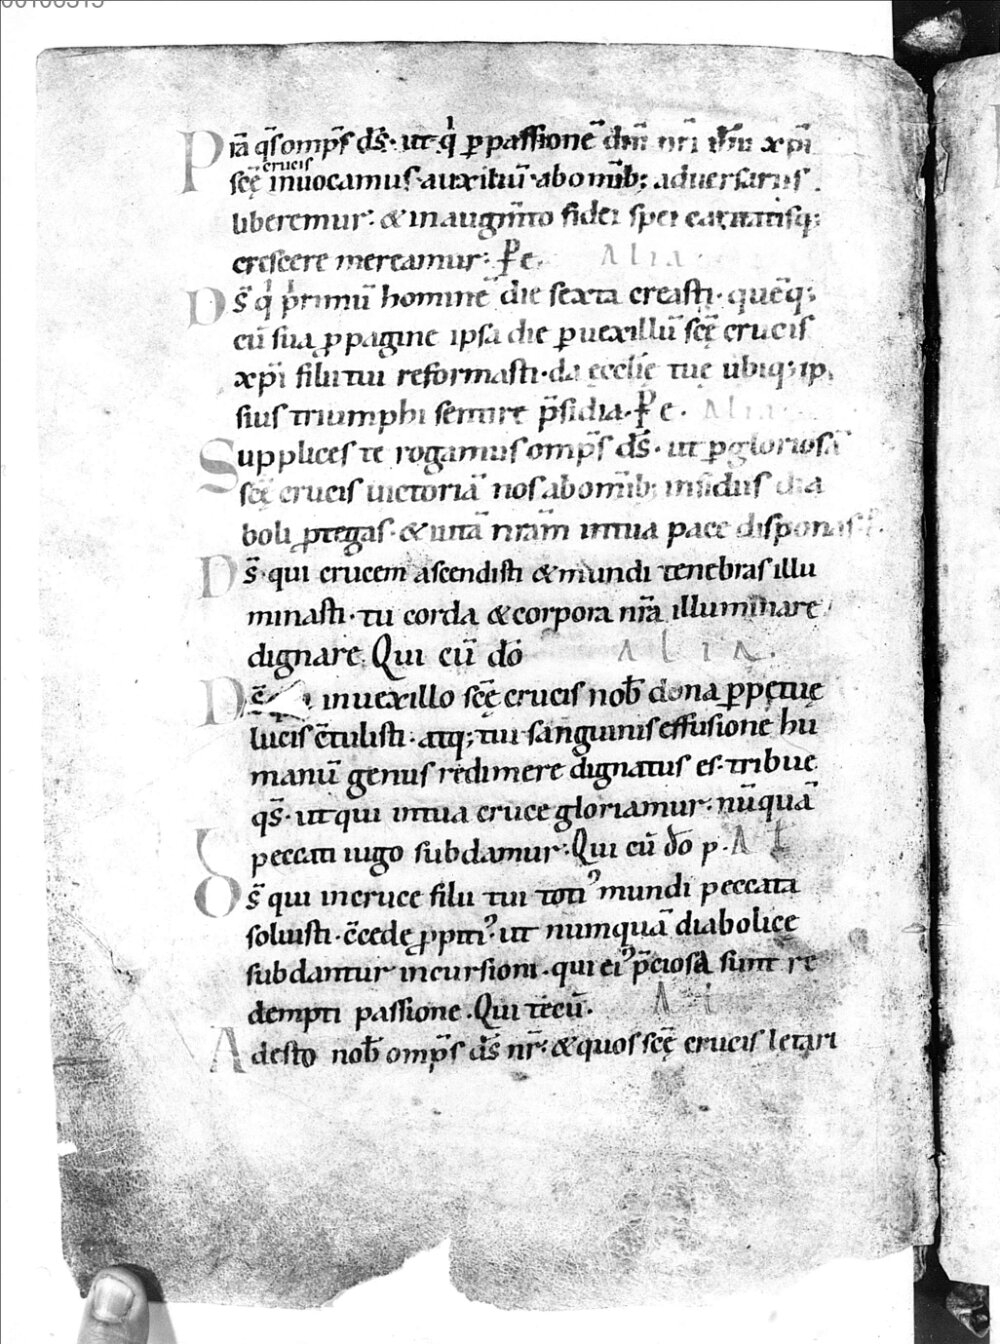 P r̄a q̄s omp̄s d̄s· ut qⁱ p̱ passionē dn̄i nr̄i ih̄u xp̄i
sc̄ę crucis inuocamus· auxiliū· ab om̄ib; aduersariis.
liberemur· & in augm̄to fidei spei caritatisq;
crescere mereamur· P̱ e. Alia
D s̄ qⁱ pⁱmū hominē die sexta creasti· quēq;
cū sua ꝓpagine ipsa die p̱ uexillū sc̄ę crucis
xp̄i filii tui reformasti· da ęcclię tue ubiq; ip
sius triumphi sentire p̄sidia· P̱ e. Alia
Supplices te rogamus omp̄s d̄s· ut p̱ gloriosā
sc̄ę crucis uictoriā nos ab om̄ib; insidiis dia
boli ꝓtegas· & uitā nr̄am in tua pace disponas.
D s̄ qui crucem ascendisti & mundi tenebras illu
minasti· tu corda & corpora nr̄a illuminare
dignare. Qui cū dō Alia.
D s̄ in uexillo sc̄ę crucis nob̄ dona p̱pętuę
lucis c̄tulisti· atq; tui sanguinis effusione hu
manū genus redimere dignatus es· tribue
q̄s· ut qui in tua cruce gloriamur· nūquā
peccati iugo subdamur· Qui cū dō p. Al
D s̄ qui in cruce filii tui toti᾿ mundi peccata
soluisti· c̄cede ꝓpiti᾿· ut numquā diabolice
subdantur incursioni· qui ei᾿ p̄ciosa sunt re
dempti passione. Qui tecū. Al
Adesto nob̄ omp̄s d̄s nr̄· & quos sc̄ę crucis letari